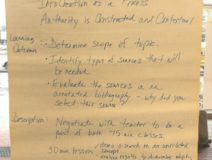 Information as a Process
Authority is Constructed and Contextual
Learning Outcomes
• Determine scope of topic.
• Identify types of sources that will be needed.
• Evaluate the sources in an annotated bibliography - why did you select this source?
Description:
Negotiate with teacher to be a part of both 75 min classes.
50 min session /